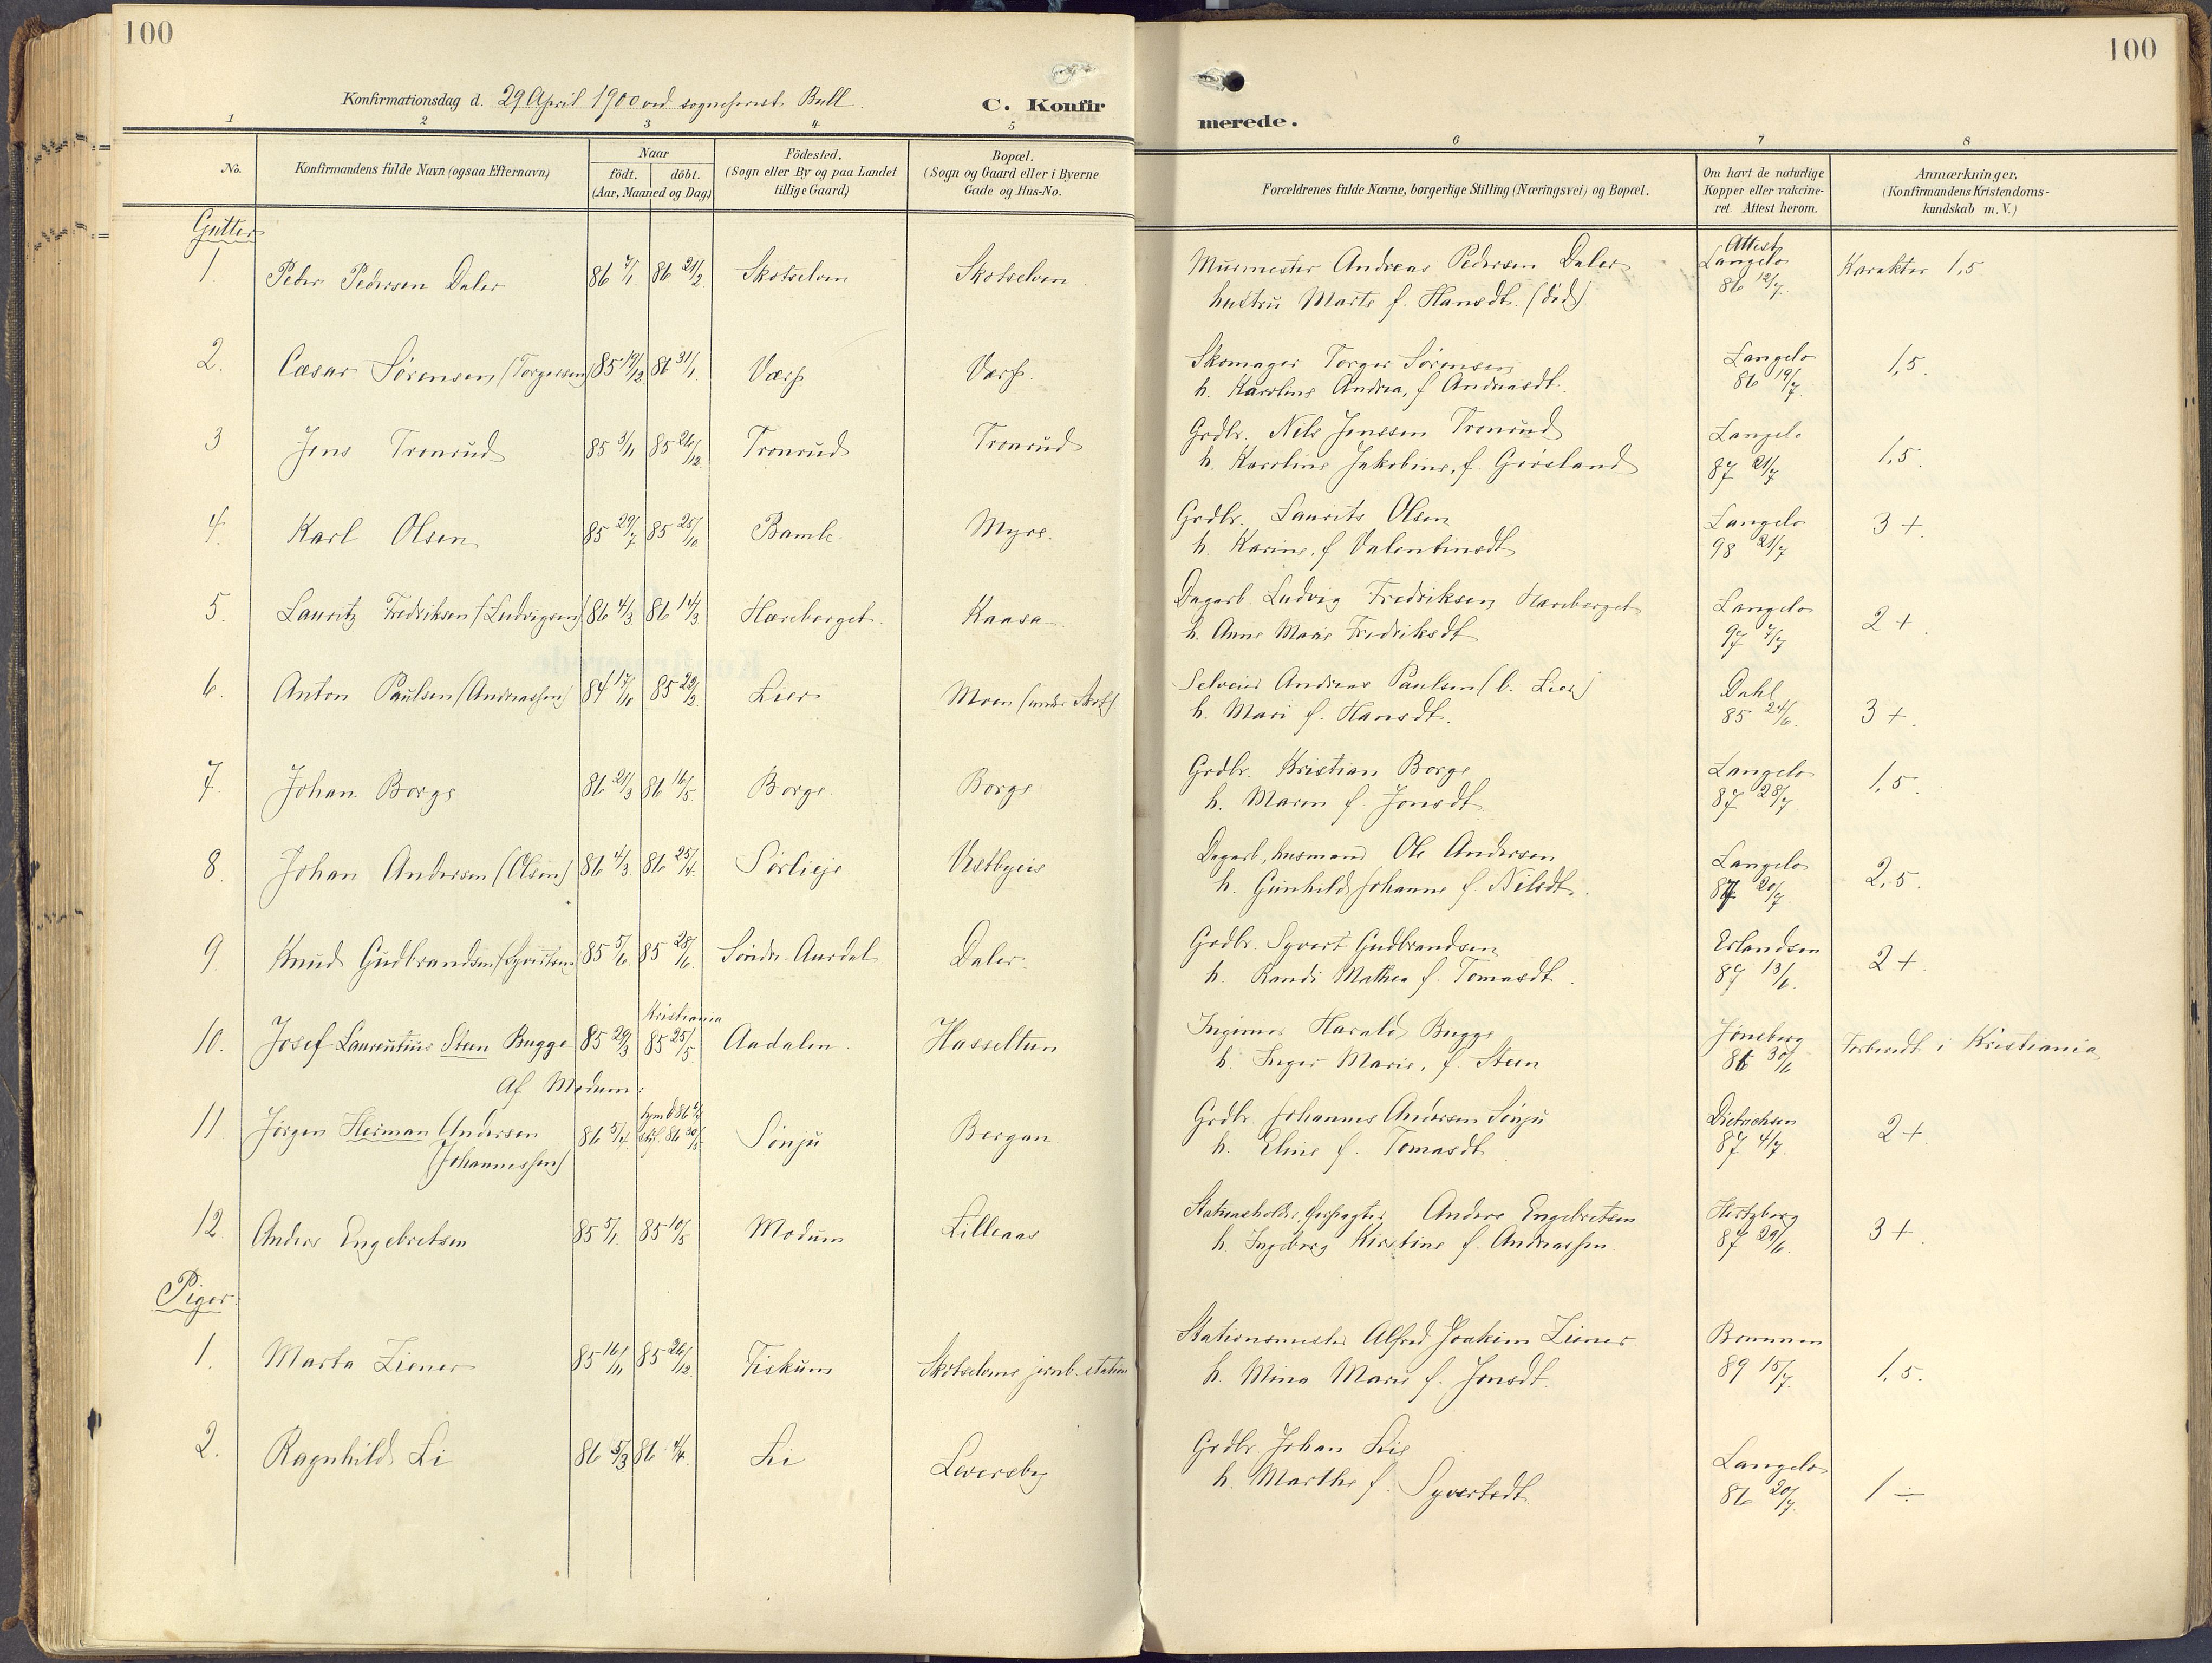 100
100
Konfirmationsdag d. 29 April 1900 ved sogneprest Bull.
C. Konfirmerede.
1 2 3 4 5 6 7 8
No.
Konfirmandens fulde Navn (ogsaa Efternavn)
Naar
födt. döbt.
(Aar, Maaned og Dag)
Födested.
(Sogn eller By og paa Landet
tillige Gaard)
Bopæl.
(Sogn og Gaard eller i Byerne
Gade og Hus-No.
Forældrenes fulde Navne, borgerlige Stilling (Næringsvei) og Bopæl.
Om havt de naturlige
Kopper eller vakcine-
ret. Attest herom.
Anmærkninger.
(Konfirmandens Kristendoms-
kundskab m. V.)
Gutter
1. Peder Pedersen Daler 86 7/1. 86 21/2. Skotselven Skotselven.
Murmester Andreas Pedersen Daler
hustru Marte f. Hansdt. (död)
Attest
Langelo
86 12/7.
Karakter 1,5
2. Cæsar Sørensen (Torgersen) 85 19/12. 86 31/1. Værp Værp.
Skomager Torger Sørensen
h. Karoline Andrea, f. Andreasdt.
Langelo
86 19/7.
1,5.
3 Jens Tronrud 85 3/11 85 26/12. Tronrud Tronrud
Grdbr. Nils Jenssen Tronrud
h. Karoline Jakobine, f. Grösland
Langelo
87 21/7
1,5.
4. Karl Olsen 85 29/7 85 25/10 Bamle. Myre.
Grdbr. Laurits Olsen
h. Karine, f. Valentinsdt
Langelo
98 21/7
3 +.
5. Lauritz Fredriksen (Ludvigsen) 86 4/3 86 14/3 Hæreborget. Kaasa.
Dagarb. Ludvig Fredriksen Hæreborget
h. Anne Marie Fredriksdt
Langelo
97 7/7
2 +.
6. Anton Paulsen (Andreassen) 84 17/10 85 22/2. Lier Moen (under Skots)
Selveier Andreas Paulsen (b. Lier)
h. Mari f. Hansdt.
Dahl
85 24/6.
3 +.
7. Johan Borge 86 21/3 86 16/5. Borge. Borge
Grdbr. Kristian Borge
h. Maren f. Jonsdt.
Langelo
87 28/7
1,5.
8. Johan Andersen (Olsen) 86 4/3. 86 25/4. Sørlieje Vestbyeie
Dagarb., husmand Ole Andersen
h. Gunhild Johanne f. Nilsdt.
Langelo
87 20/7.
2,5.
9. Knud Gudbrandsen (Syvertsen) 85 5/6. 85 28/6. Søndre-Aurdal Daler.
Grdbr. Syvert Gudbrandsen
h. Randi Mathea f. Tomasdt.
Erlandsen
87 13/6.
2 +.
10. Josef Laurentius Steen Bugge 85 29/3 Kristiania 85 25/5. Aadalen. Hasseltun
Ingeniør Harald Bugge
h. Inger Marie, f. Steen
86 30/6
Forberedt i Kristiania.
Af Modum:
11. Jørgen Herman Andersen 86 5/4. Sønju Bergan.
(Johannessen)
Grdbr. Johannes Andersen Sønju
h. Eline f. Tomasdt.
Dietrichsen
87 4/7.
2 +.
12. Anders Engebretsen 85 5/1. 85 10/5 Modum Lilleaas
Stationsholder, forpagter Anders Engebretsen
h. Ingeborg Kirstine f. Andreassen.
Hertzberg
87 29/6.
3 +.
Piger:
1. Marta Ziener 85 16/11 85 26/12. Fiskum Skotselvens jernb. station
Stationsmester Alfred Joakim Ziener
h. Mina Marie f. Jonsdt.
89 15/7.
1,5.
2. Ragnhild Li 86 5/3 86 4/4. Li Leversby
Grdbr. Johan Lie
h. Marthe f. Syvertsdt.
Langelo
86 20/7.
1 ÷